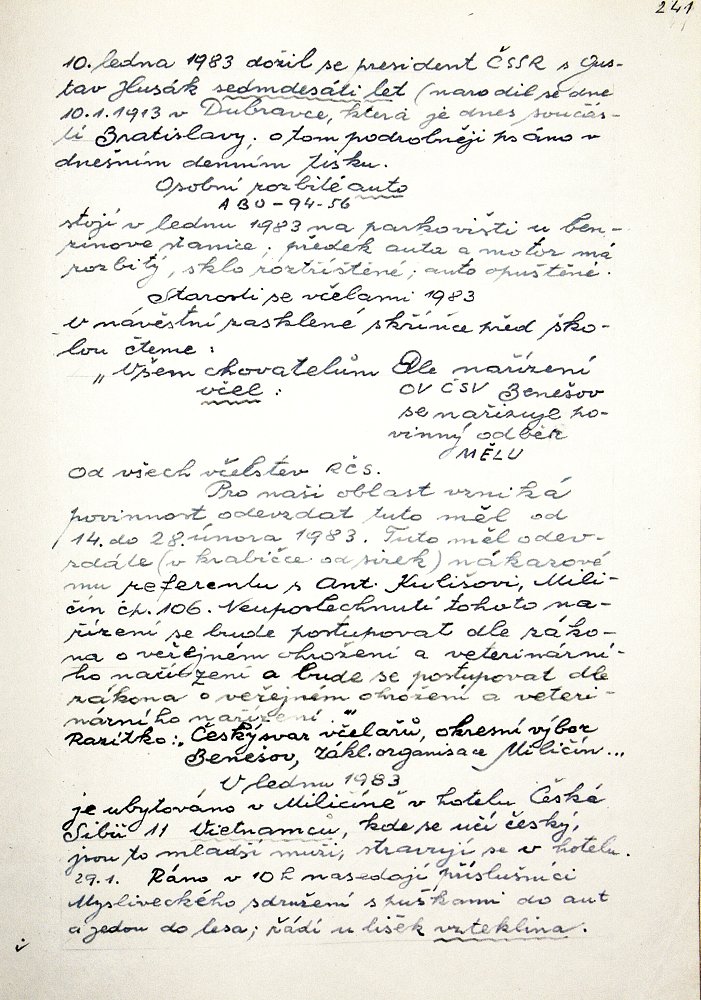 241
10. ledna 1983 dožil se president ČSSR s Gus-
tav Husák sedmdesáti let (narodil se dne
10.1.1913 v Dubravce, která je dnes součás-
tí Bratislavy; o tom podrobněji psáno v
dnešním denním tisku.
Osobní rozbité auto
ABO-94-56
stojí v lednu 1983 na parkovišti u ben-
zinové stanice; předek auta a motor má
rozbitý, sklo roztříštěné; auto opuštěné.
Starosti se včelami 1983
V návěstní zasklené skříňce před ško-
lou čteme:
"Všem chovatelům
včel:
Dle nařízení
OV ČSV Benešov
se nařizuje po-
vinný odběr
MĚLU
od všech včelstev RČS.
Pro naši oblast vzniká
povinnost odevzdat tuto měl od
14. do 28. února 1983. Tuto měl odev-
zdáte (v krabičce od sirek) nákazové
mu referentu s Ant. Kulišovi, Mili-
čín čp. 106. Neuposlechnutí tohoto na-
řízení se bude postupovat dle záko-
na o veřejném ohrožení a veterinární-
ho nařízení a bude se postupovat dle
zákona o veřejném ohrožení a veteri-
nárního nařízení."
Razítko: "Český svaz včelařů, okresní výbor
Benešov, zákl. organisace Miličín...
V lednu 1983
je ubytováno v Miličíně v hotelu Česká
Sibiř 11 Vietnamců, kde se učí český;
jsou to mladší muži, stravují se v hotelu.
29.1. Ráno v 10 h nasedají příslušníci
Mysliveckého sdružení s puškami do aut
a jedou do lesa; řádí u lišek vzteklina.